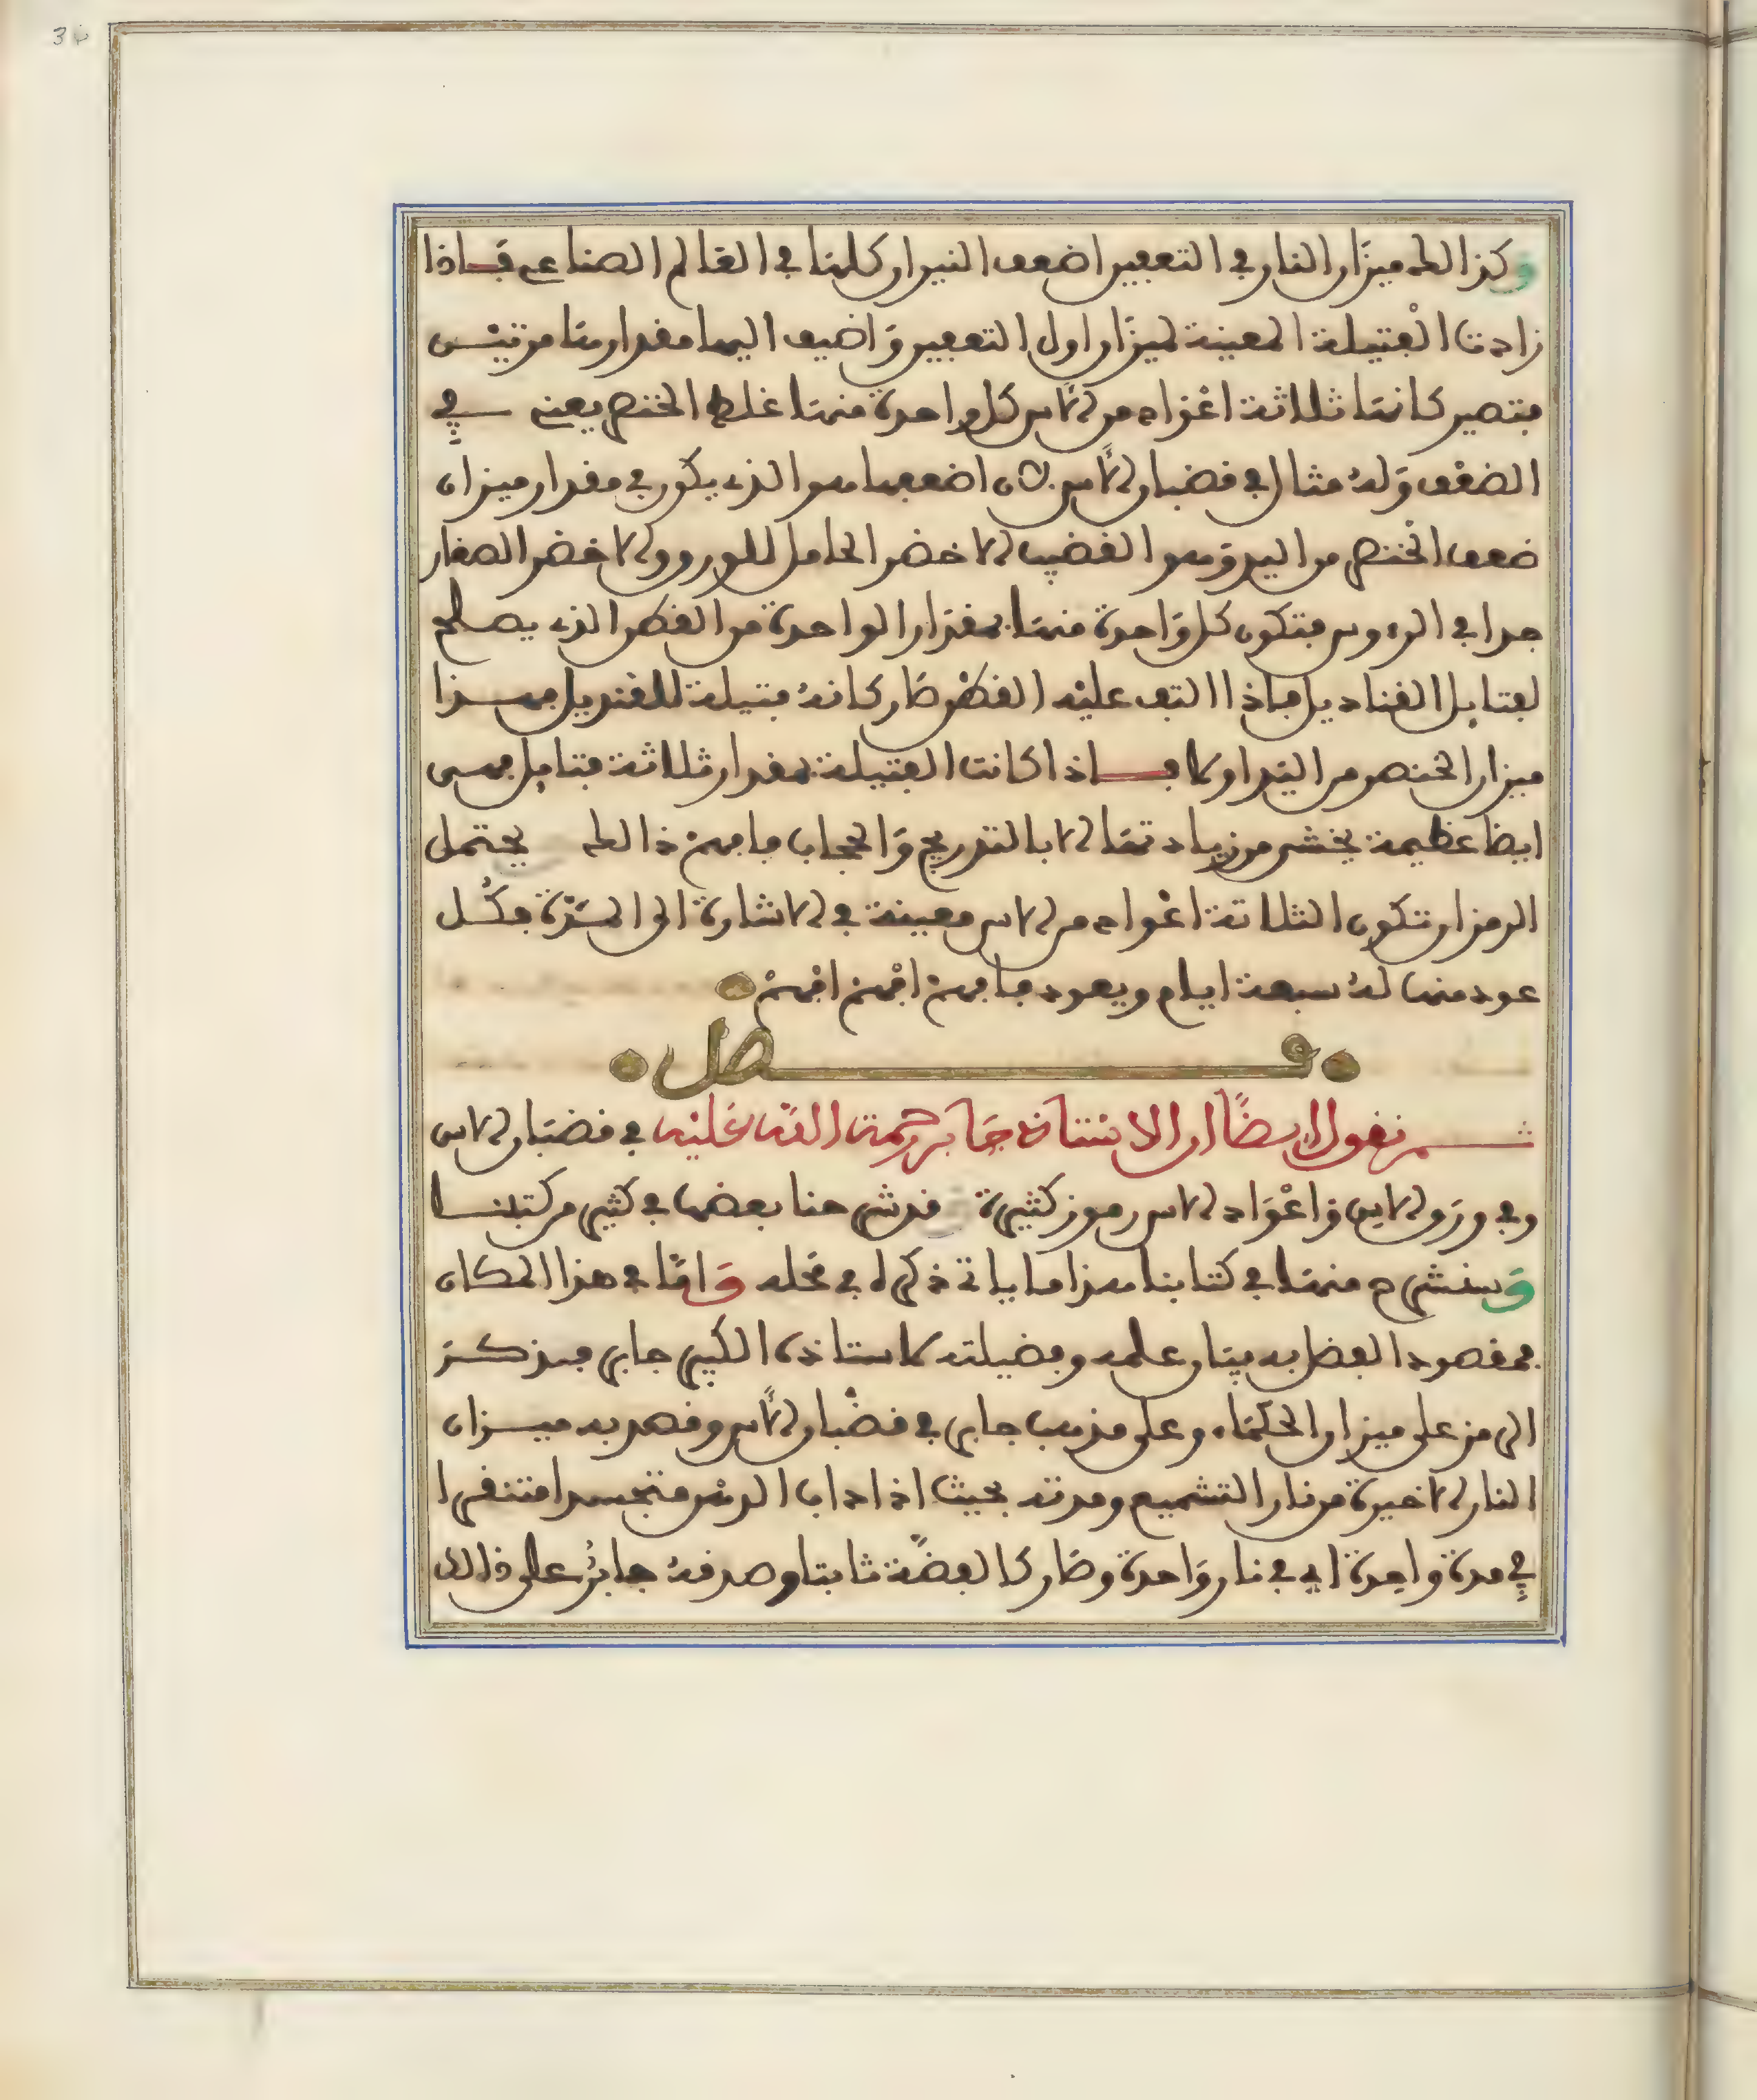 وكذالك ميزان النار في التعفين اضعف النيران كلها في العالم الصناعي فاذا
زادت الفتيلة المعينة لميزان اول التعفين واضيف اليها مقدارها مرتيـــن
فتصير كانها ثلاثة اعواد من الاس كل واحدة منها غلظ الخنصر يعني في
الضعف وله مثال في قضبان الاس لان اضعفها هو الذي يكون في مقدار ميزان
ضعف الخنصر من اليد وهو القضيب الاخضر الحامل للورق والاخضر الصغار
جدا في الرءوس فتكون كل واحدة منها بمقدار الواحدة من القطن الذي يصلح
لفتايل القناديل فاذا التف عليه القطن صار كانه فتيلة للقنديل فهــذا
ميزان الخنصر من اليد اولا فــاذا كانت الفتيلة بمقدار ثلاثة فتايل فهي
ايضا عظيمة يخشى من زيادتها الا بالتدريج والحجاب فافهم ذالك يحتمل
الرمز ان تكون الثلاثة اعواد من الاس معينة في الاشارة الى المدة فكــل
عود منها له سبعة ايام ويعود فافهم افهم افهم
فــصل
ثــم نقول ايضا ان الاستاذ جابر رحمة الله عليه في قضبان الاس
وفي ورق الاس واعواد الاس رموز كثيرة قد شرحنا بعضها في كثير من كتبنــا
وسنشرح منها في كتابنا هذا ما ياتي ذكره في محله واما في هذا المكان
فمقصود الفضل به بيان علمه وفضيلته كاستاذه الكبير جابر فيذكــر
الرمز على ميزان الحكماء وعلى مذهب جابر في قضبان الاس وقصد به ميــزان
النار الاخيرة من نار التشميع ومدته بحيث اذا داب الدهن متجسدا منتفرا
في مدة واحدة اي في نار واحدة وصار كالفضة ثابتا وصدقه جابر على ذالك